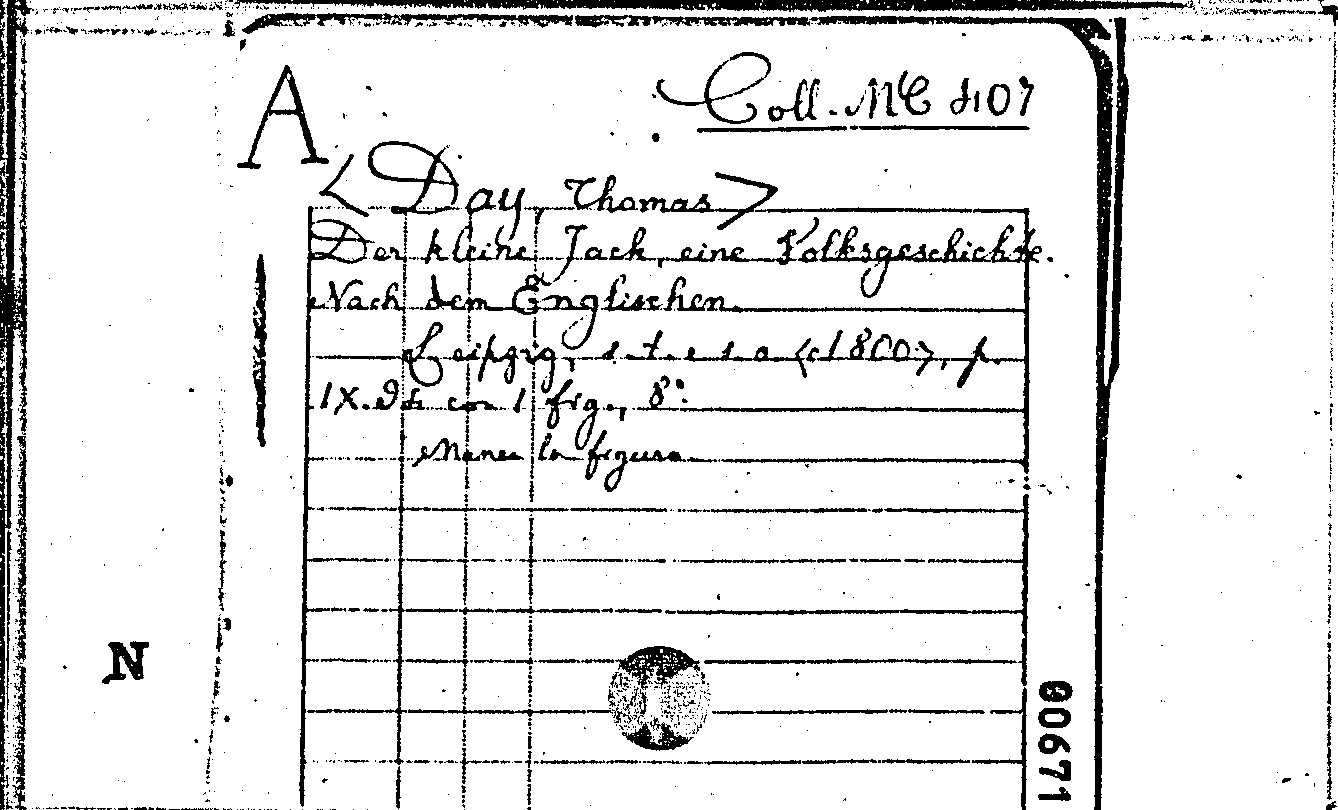 A
Coll. MC 407
<Day, Thomas>
Der kleine Jack, eine Volksgeschichte.
Nach dem Englischen.
Leipzig, s. t. e s. a <c1800>, p.
IX.94 con 1 fig., 8°.
Manca la figura.
N
00671